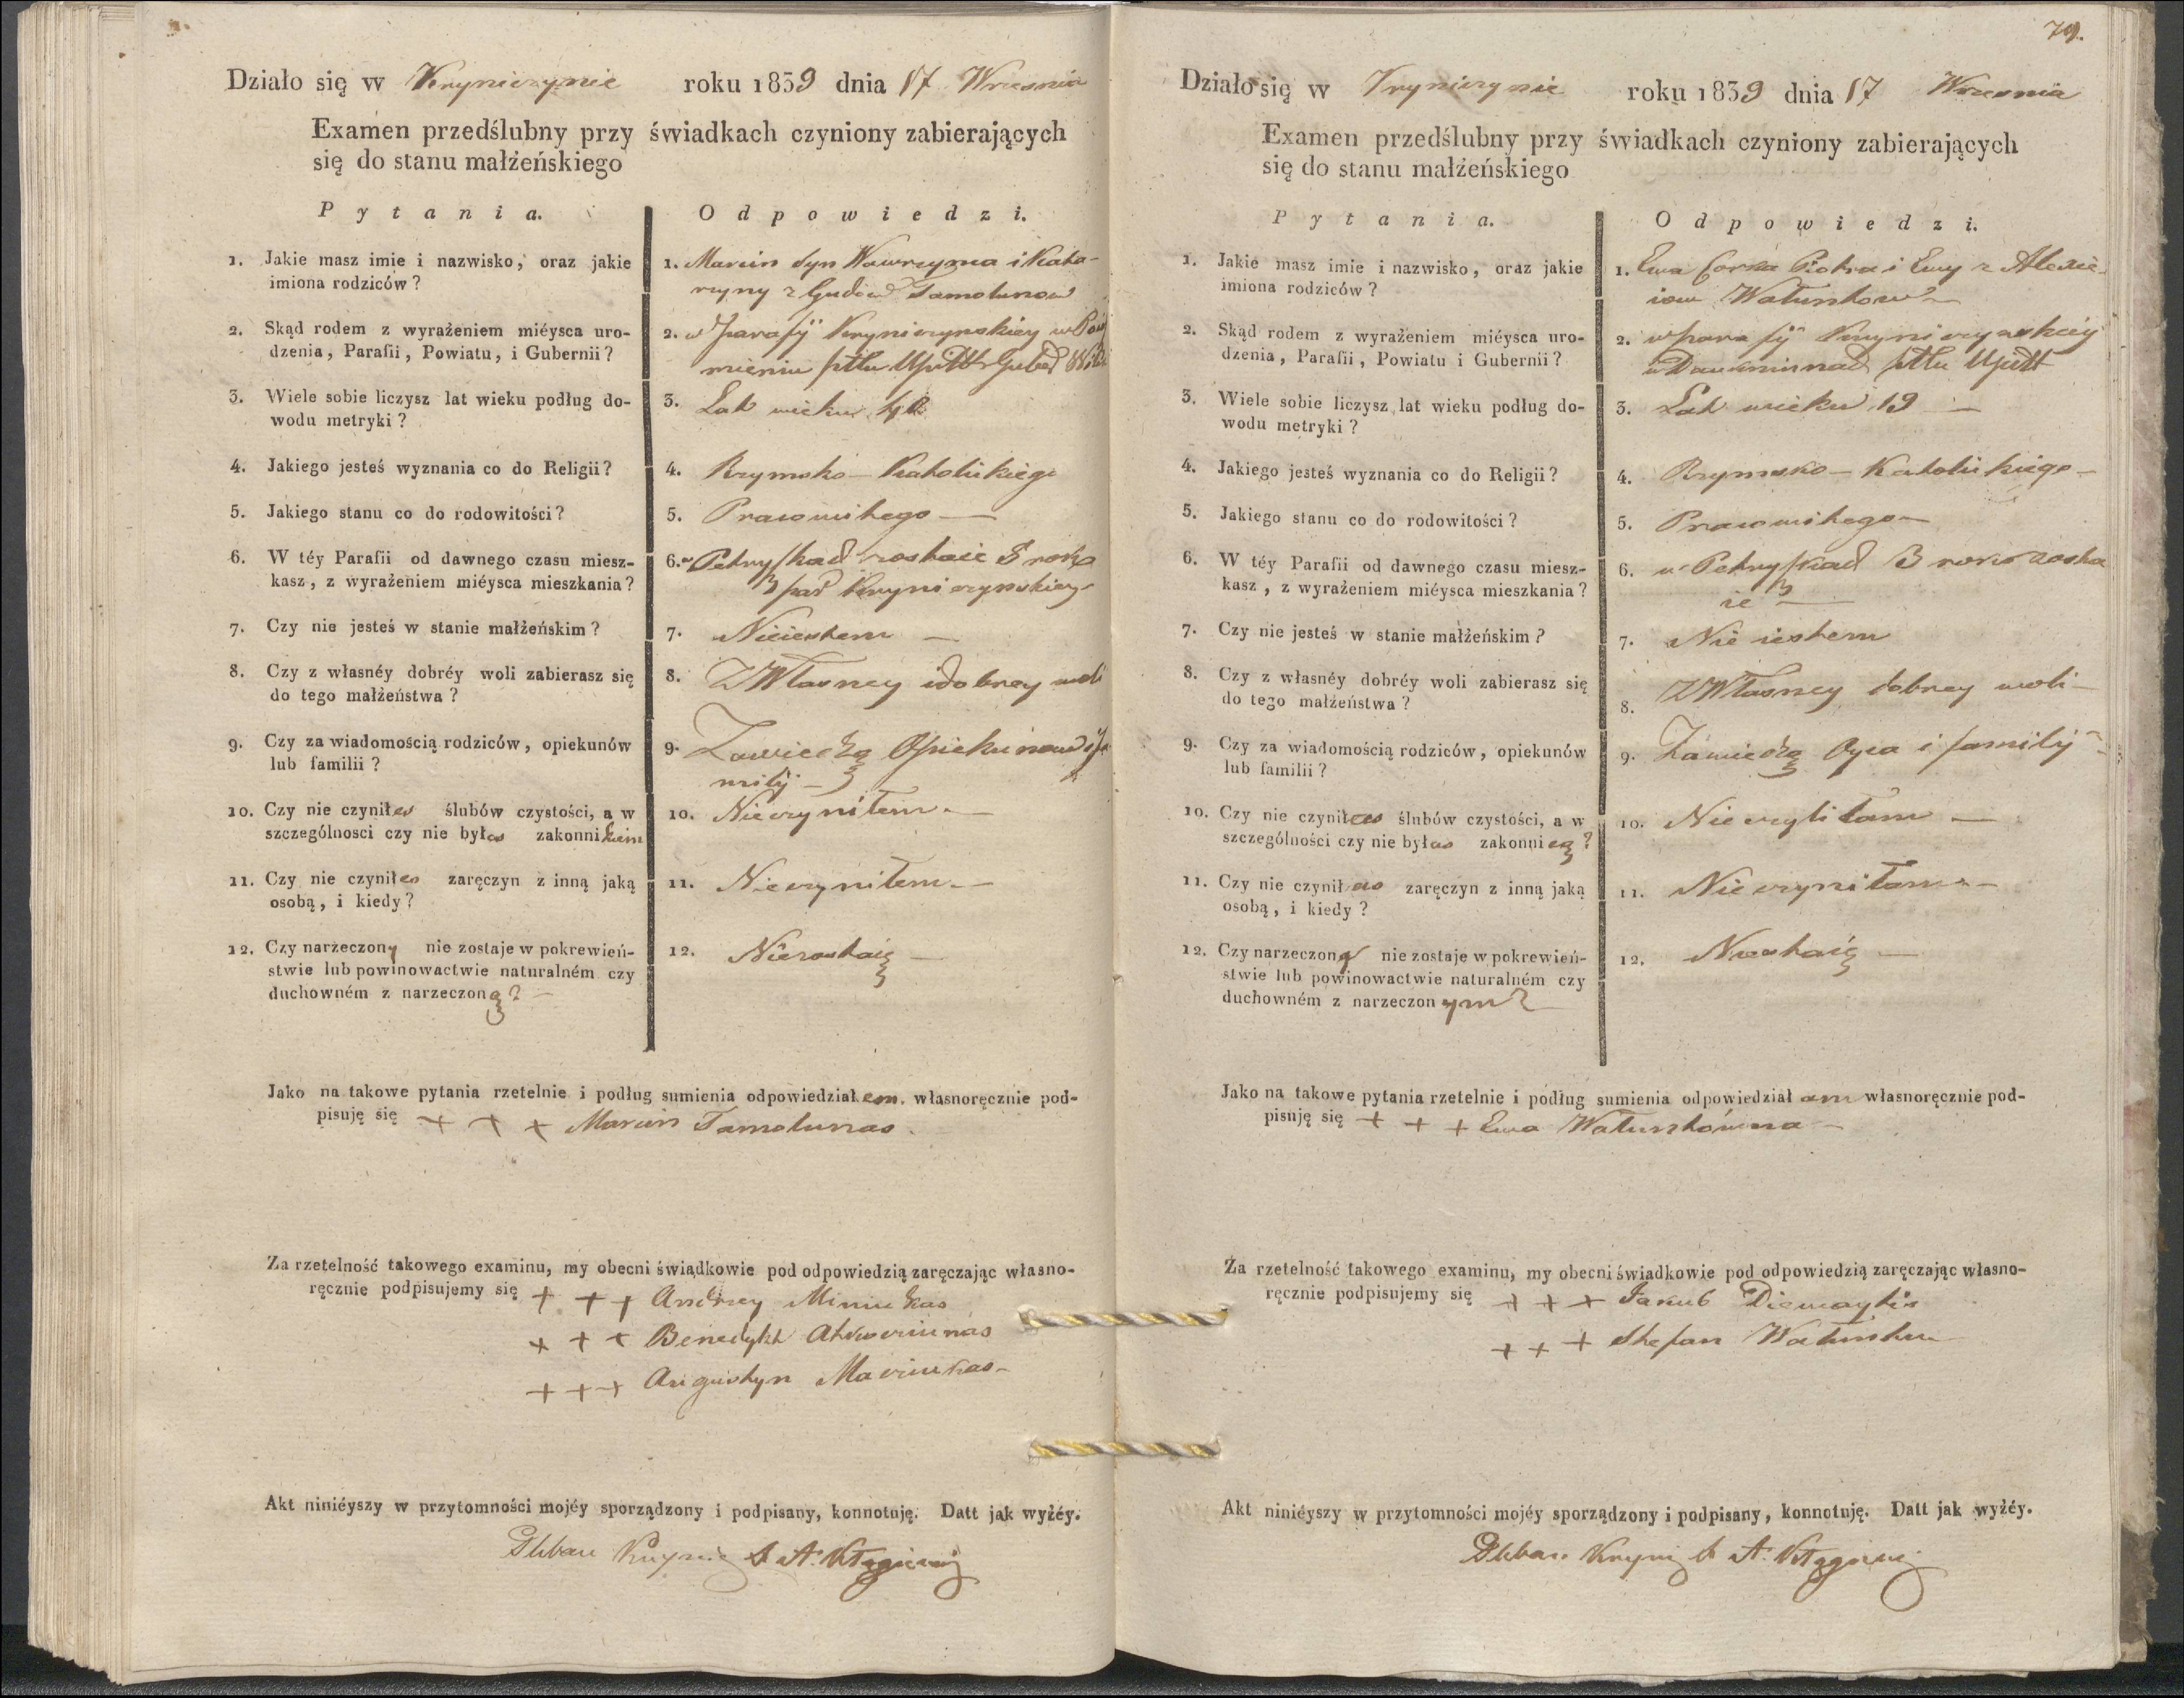 Działo się w Kryniczynie roku 1839 dnia 17 Wrzesnia
Examen przedślubny przy świadkach czyniony zabierających
się do stanu małżeńskiego
Pytania. Odpowiedzi.
1. Jakie masz imie i nazwisko, oraz jakie
imiona rodziców?
1. Marcin Syn Wawrzyna i Kata-
rzyny z Gudow Tamolunow
2. Skąd rodem z wyrażeniem miéysca uro-
dzenia, Parafii, Powiatu, i Gubernii?
2. w parafij Kryniczynskiey w
mieniu pttu Upitt Guber
3. Wiele sobie liczysz lat wieku podług do-
wodu metryki?
3. Lat wieku
4. Jakiego jesteś wyznania co do Religii?
4. Rzymsko-Katolickiego
5. Jakiego stanu co do rodowitości?
5. Pracowitego —
6. W téy Parafii od dawnego czasu miesz-
kasz, z wyrażeniem miéysca mieszkania?
6. w Petryszkad zostaie roku
par Kryniczynskiey
7. Czy nie jesteś w stanie małżeńskim?
7. Nieiestem —
8. Czy z własnéy dobréy woli zabierasz się
do tego małżeństwa?
8. Z Własney i dobrey woli
9. Czy za wiadomością rodziców, opiekunów
lub familii?
9. Zawiedzą Opiekunow i fa
milij —
10. Czy nie czyniłes ślubów czystości, a w
szczególnosci czy nie byłes zakonnikiem
10. Nieczyniłem —
11. Czy nie czyniłes zaręczyn z inną jaką
osobą, i kiedy?
11. Nieczyniłem —
12. Czy narzeczony nie zostaje w pokrewień-
stwie lub powinowactwie naturalném czy
duchowném z narzeczoną? —
12. Niezostaię —
Jako na takowe pytania rzetelnie i podług sumienia odpowiedziałem. własnoręcznie pod-
pisuję się + + + Marcin Tamolunas
Za rzetelność takowego examinu, my obecni świądkowie pod odpowiedzią zaręczając własno-
ręcznie podpisujemy się + + + Andrzey Miniukas
+ + + Benedykt Atkoeiunas
+ + + Augustyn Maciukas —
Akt niniéyszy w przytomności mojéy sporządzony i podpisany, konnotuję. Datt jak wyżéy.
Pleban Krynicz
79.
Działo się w Kryniczynie roku 1839 dnia 17 Wrzesnia
Examen przedślubny przy świadkach czyniony zabierających
się do stanu małżeńskiego
Pytania. Odpowiedzi.
1. Jakie masz imie i nazwisko, oraz jakie
imiona rodziców?
1. Ewa Corka Piotra i Ewy z Alexie-
iow Watunkow —
2. Skąd rodem z wyrażeniem miéysca uro-
dzenia, Parafii, Powiatu i Gubernii?
2. w parafij Kryniczynskiey
pttu Upitt
3. Wiele sobie liczysz lat wieku podług do-
wodu metryki?
3. Lat wieku 19 —
4. Jakiego jesteś wyznania co do Religii?
4. Rzymsko-Katolickiego —
5. Jakiego stanu co do rodowitości?
5. Pracowitego —
6. W téy Parafii od dawnego czasu miesz-
kasz, z wyrażeniem miéysca mieszkania?
6. w Petryszkad 3 roku zosta
ie —
7. Czy nie jesteś w stanie małżeńskim?
7. Nie iestem
8. Czy z własnéy dobréy woli zabierasz się
do tego małżeństwa?
8. Z Własney dobrey woli —
9. Czy za wiadomością rodziców, opiekunów
lub familii?
9. Zawiedzą Oyca i familij —
10. Czy nie czyniłas ślubów czystości, a w
szczególności czy nie byłas zakonnicą?
10. Nieczyliłam —
11. Czy nie czyniłas zaręczyn z inną jaką
osobą, i kiedy?
11. Nieczyniłam —
12. Czy narzeczona nie zostaje w pokrewień-
stwie lub powinowactwie naturalném czy
duchowném z narzeczonym?
12. Niezostaię —
Jako na takowe pytania rzetelnie i podług sumienia odpowiedziałam własnoręcznie pod-
pisuję się + + + Ewa Watunkówna —
Za rzetelność takowego examinu, my obecni świadkowie pod odpowiedzią zaręczając własno-
ręcznie podpisujemy się + + + Jakub Diemaytis
+ + + Stefan Watunkun
Akt niniéyszy w przytomności mojéy sporządzony i podpisany, konnotuję. Datt jak wyżéy.
Pleban Krynicz